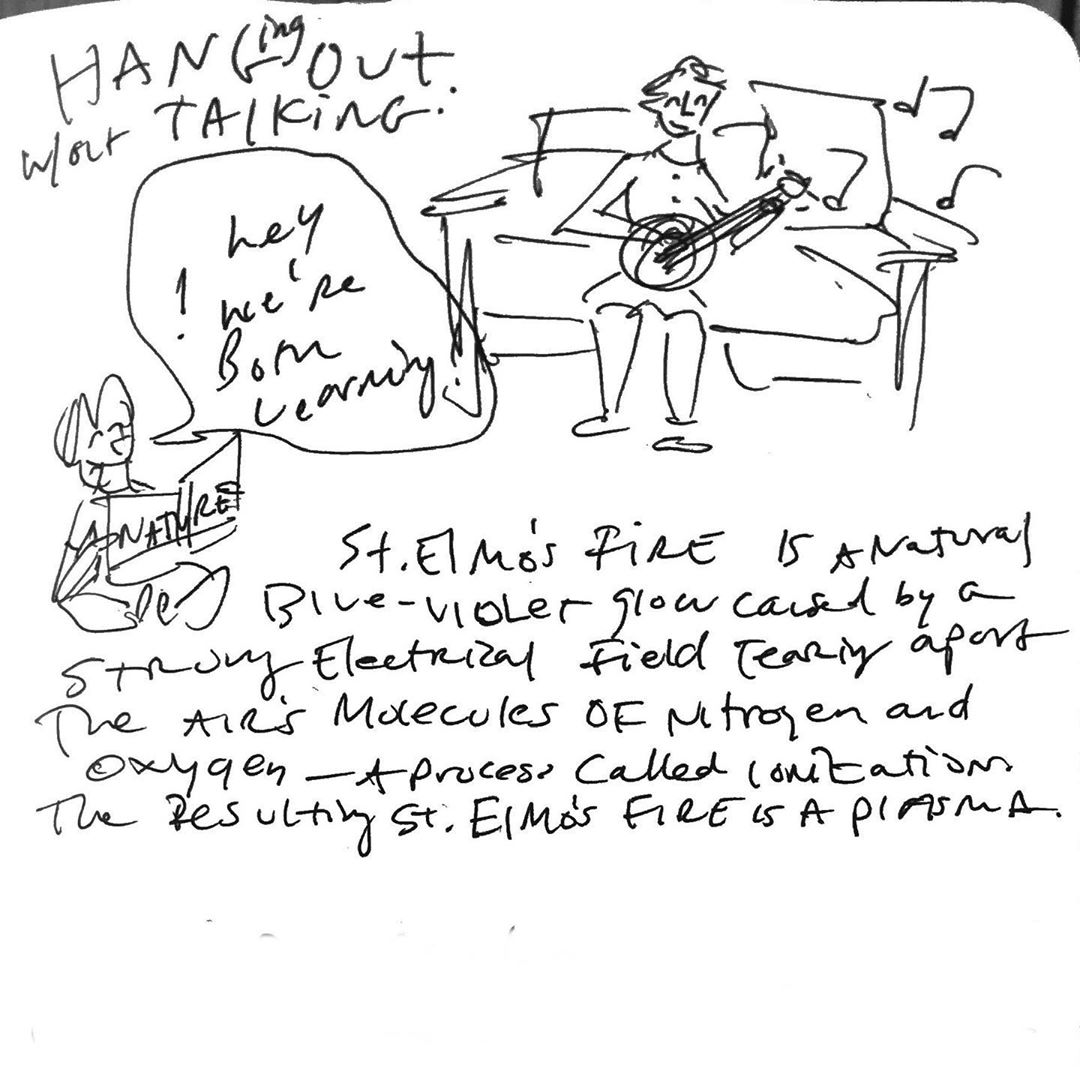 HANGing OUT
w/out TALKING.
hey
! we're
Both
Learning!
NATURE
St. Elmo's FiRE is A Natural
Blue-violet glow caused by a
strong Electrical Field Tearing apart
The AIR's Molecules OF Nitrogen and
oxygen — A process called ionization.
The Resulting St. Elmo's FIRE is A plASMA.